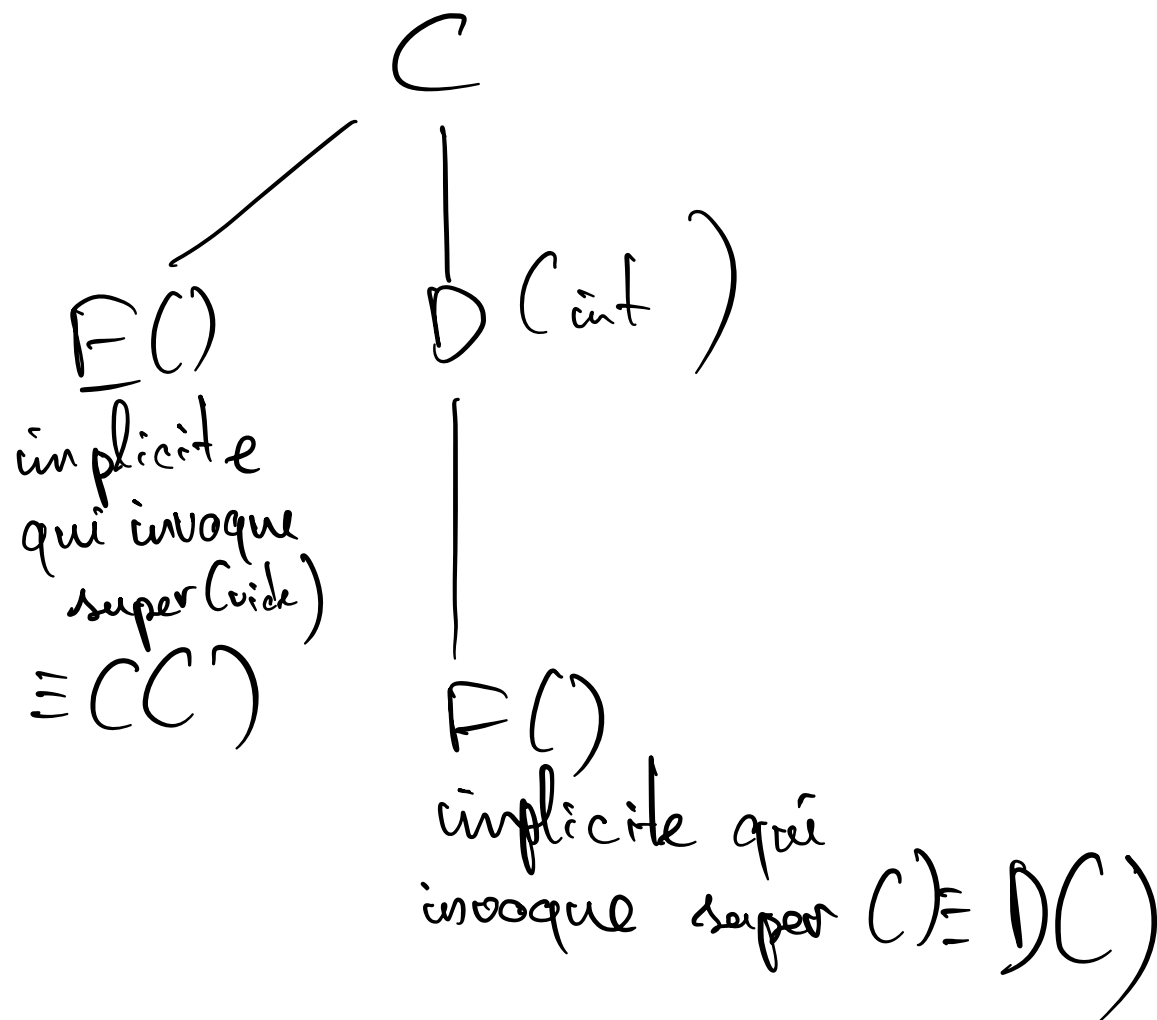 C
E()
D (int)
implicite
qui invoque
super(vide)
≡ C()
F()
implicite qui
invoque super () ≡ D()